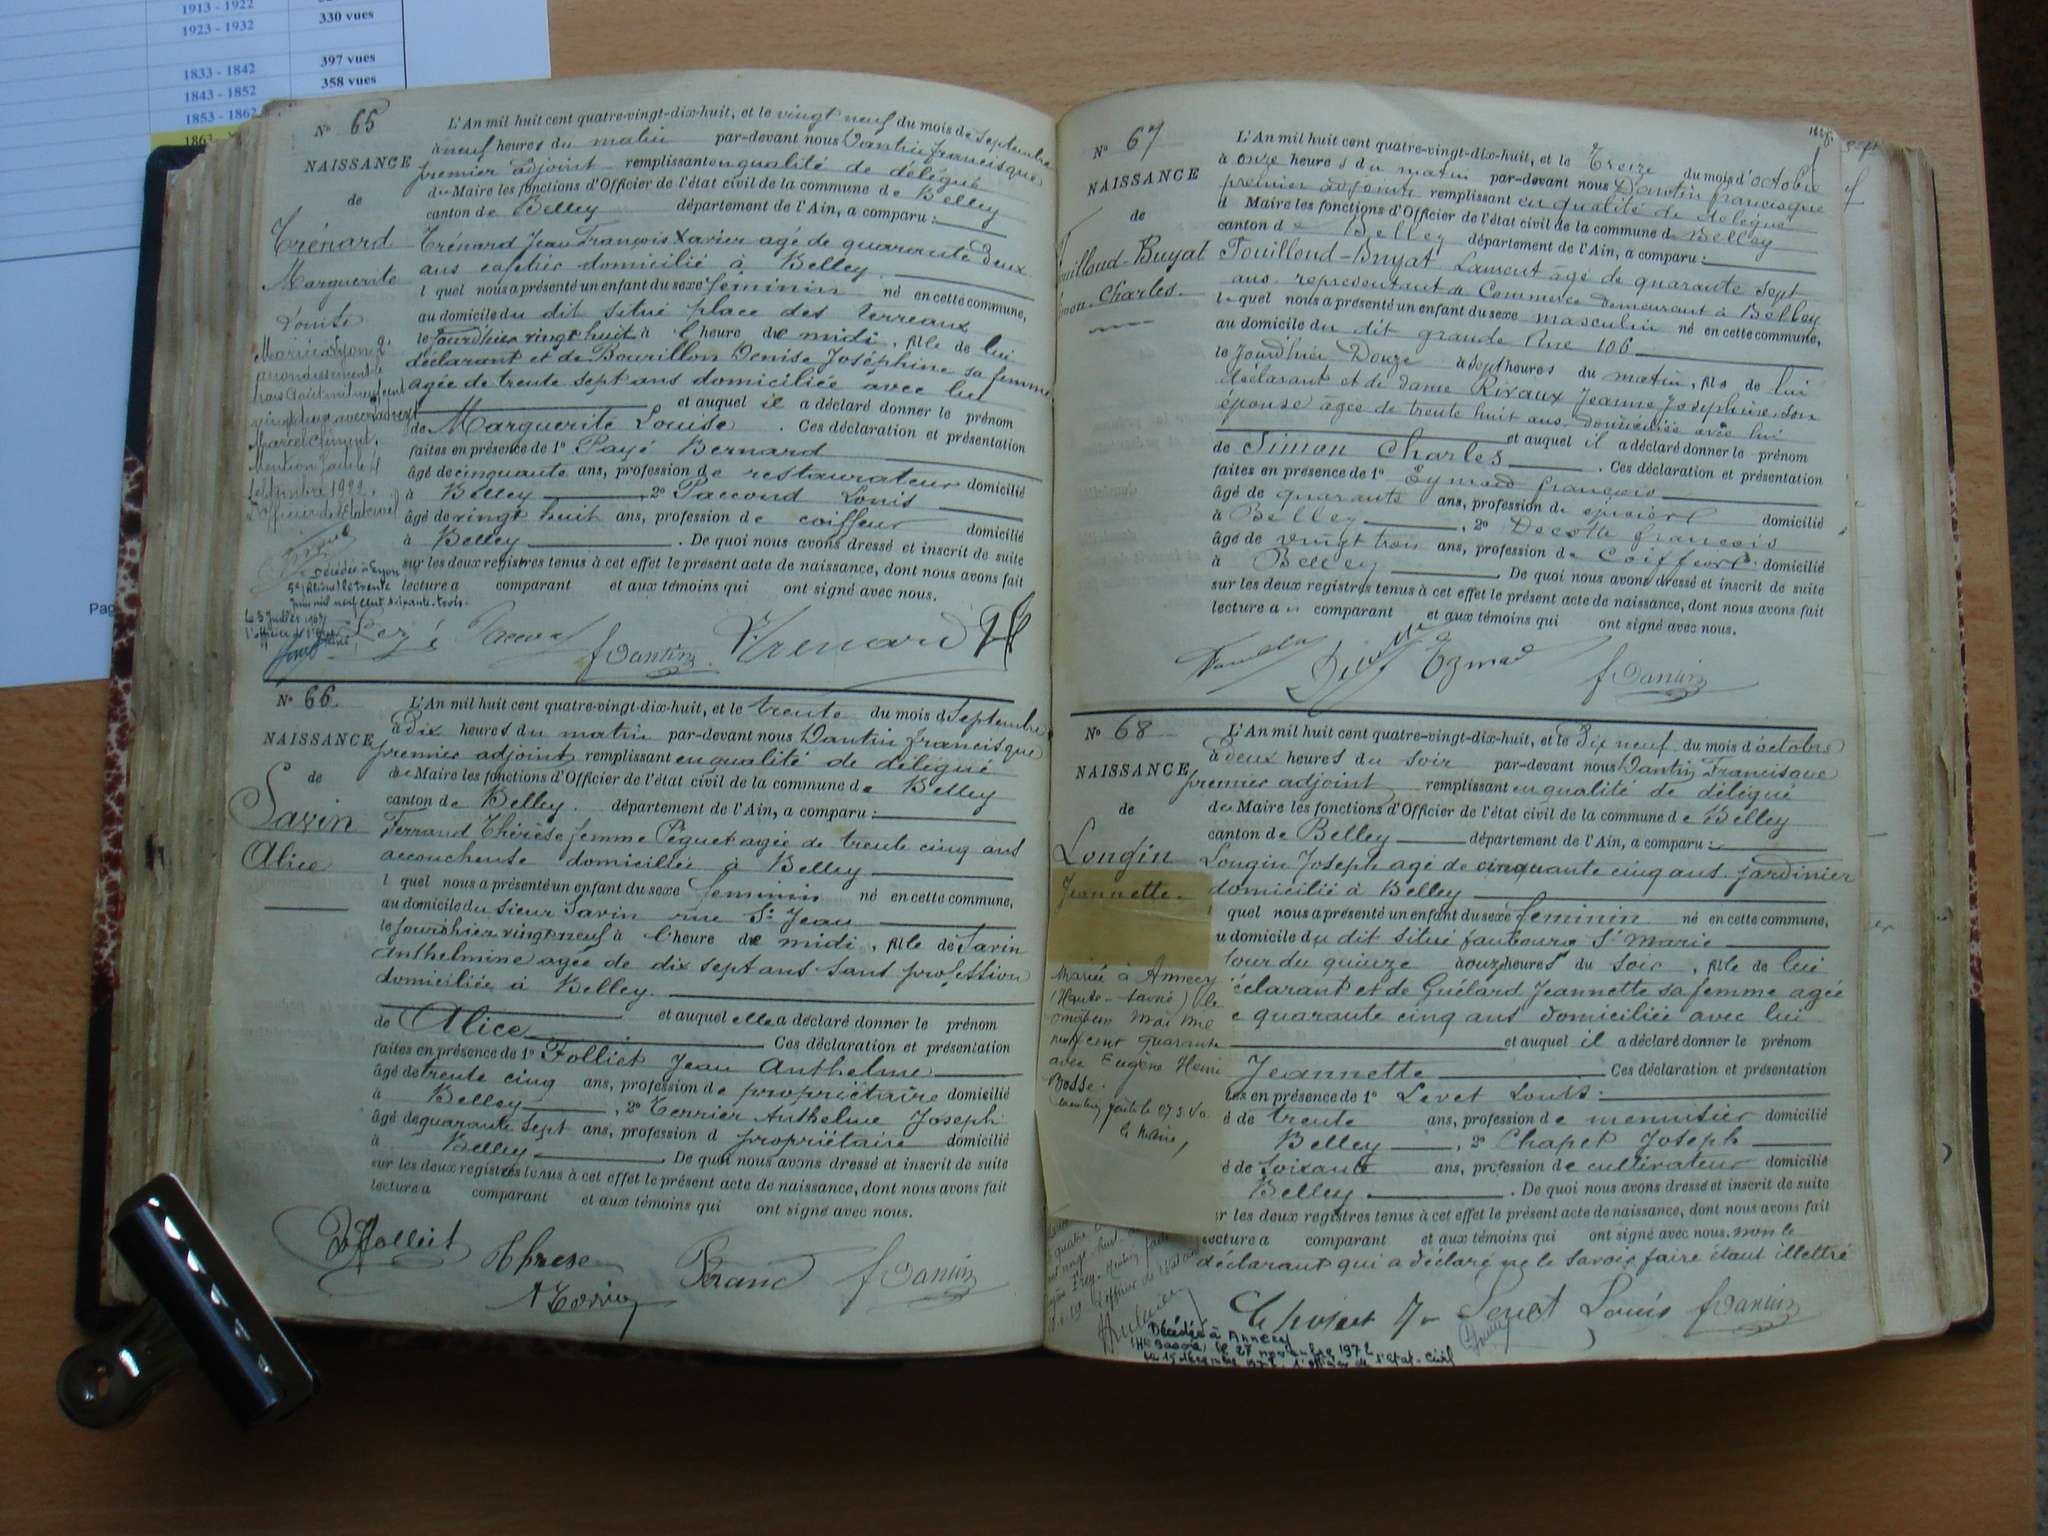 1913 - 1922
1923 - 1932
330 vues
1833 - 1842
397 vues
1843 - 1852
358 vues
1853 - 1862
1863
Pag
N° 65
NAISSANCE
de
Trénard
Marguerite
Louise
L'An mil huit cent quatre-vingt-dix-huit, et le vingt neuf du mois de Septembre
à neuf heures du matin par-devant nous Dantin francisque
premier adjoint remplissant en qualité de délégué
du Maire les fonctions d'Officier de l'état civil de la commune de Belley
canton de Belley département de l'Ain, a comparu :
Trénard Jean François Xavier agé de quarante deux
ans cafetier domicilié à Belley.
l quel nous a présenté un enfant du sexe féminin né en cette commune,
au domicile du dit situé place des terreaux
le jourd'hier vingt huit à l'heure de midi, fille de lui
déclarant et de Bourillon Denise Joséphine sa femme
agée de trente sept ans domiciliée avec lui
et auquel il a déclaré donner le prénom
de Marguerite Louise. Ces déclaration et présentation
faites en présence de 1° Payé Bernard
âgé de cinquante ans, profession de restaurateur domicilié
à Belley, 2° Paccoud Louis
âgé de vingt huit ans, profession de coiffeur domicilié
à Belley. De quoi nous avons dressé et inscrit de suite
sur les deux registres tenus à cet effet le présent acte de naissance, dont nous avons fait
lecture a comparant et aux témoins qui ont signé avec nous.
Mariée à Lyon 2e
arrondissement le
trois Août mil neuf cent
vingt deux avec
Marcel Clément.
Mention faite le 4
Septembre 1922.
L'officier de l'Etat civil
Décédée à Lyon
5e (Rhône) le trente
juin mil neuf cent soixante-trois.
Le 5 Juillet 1963
l'officier de l'Etat
f Dantin
Trénard
N° 66.
NAISSANCE
de
Savin
Alice
L'An mil huit cent quatre-vingt-dix-huit, et le trente du mois d Septembre
à dix heures du matin par-devant nous Dantin francisque
premier adjoint remplissant en qualité de délégué
de Maire les fonctions d'Officier de l'état civil de la commune de Belley
canton de Belley. département de l'Ain, a comparu :
Ferrand Thérèse femme Péquet agée de trente cinq ans
accoucheuse domiciliée à Belley
l quel nous a présenté un enfant du sexe féminin né en cette commune,
au domicile du sieur Savin rue St Jean
le jourd'hier vingt neuf à l'heure de midi, fille de Savin
Anthelmine agée de dix sept ans sans profession
domiciliée à Belley.
et auquel elle a déclaré donner le prénom
de Alice Ces déclaration et présentation
faites en présence de 1° Folliet Jean Anthelme
âgé de trente cinq ans, profession de propriétaire domicilié
à Belley, 2° Terrier Anthelme Joseph
âgé de quarante sept ans, profession d propriétaire domicilié
à Belley. De quoi nous avons dressé et inscrit de suite
sur les deux registres tenus à cet effet le présent acte de naissance, dont nous avons fait
lecture a comparant et aux témoins qui ont signé avec nous.
Folliet
f Dantin
N° 67
NAISSANCE
de
Fouilloud-Buyat
Simon Charles.
L'An mil huit cent quatre-vingt-dix-huit, et le Treize du mois d'octobre
à onze heures du matin par-devant nous Dantin francisque
premier adjoint remplissant en qualité de délégué
d Maire les fonctions d'Officier de l'état civil de la commune d Belley
canton de Belley département de l'Ain, a comparu :
Fouilloud-Buyat Laurent âgé de quarante sept
ans représentant de Commerce demeurant à Belley
lequel nous a présenté un enfant du sexe masculin né en cette commune,
au domicile du dit grande Rue 106
le jourd'hier Douze à sept heures du matin, fils de lui
déclarant et de dame Rivaux Jeanne Joséphine son
épouse âgée de trente huit ans domiciliée avec lui
et auquel il a déclaré donner le prénom
de Simon Charles. Ces déclaration et présentation
faites en présence de 1° Eymard françois
âgé de quarante ans, profession de épicier domicilié
à Belley, 2° Decotte françois
âgé de vingt trois ans, profession de Coiffeur domicilié
à Belley. De quoi nous avons dressé et inscrit de suite
sur les deux registres tenus à cet effet le présent acte de naissance, dont nous avons fait
lecture a u comparant et aux témoins qui ont signé avec nous.
Eymard
f Dantin
N° 68
NAISSANCE
de
Longin
Jeannette.
L'An mil huit cent quatre-vingt-dix-huit, et le Dix neuf du mois d'octobre
à deux heures du soir par-devant nous Dantin Francisque
premier adjoint remplissant en qualité de délégué
du Maire les fonctions d'Officier de l'état civil de la commune de Belley
canton de Belley département de l'Ain, a comparu :
Longin Joseph agé de cinquante cinq ans jardinier
domicilié à Belley
quel nous a présenté un enfant du sexe féminin né en cette commune,
u domicile du dit situé faubourg St Marie
jour du quinze à onze heures du soir, fille de lui
éclarant et de Guélard Jeannette sa femme agée
e quarante cinq ans domiciliée avec lui
et auquel il a déclaré donner le prénom
Jeannette Ces déclaration et présentation
tes en présence de 1° Levet Louis
é de trente ans, profession de menuisier domicilié
Belley, 2° Chapet Joseph
é de soixante ans, profession de cultivateur domicilié
Belley. De quoi nous avons dressé et inscrit de suite
r les deux registres tenus à cet effet le présent acte de naissance, dont nous avons fait
lecture a comparant et aux témoins qui ont signé avec nous. non le
déclarant qui a déclaré ne le savoir faire étant illettré
Mariée à Annecy
(Haute-Savoie) le
cinq Mai mil
neuf cent quarante
avec Eugène Henri
Bosse.
mention faite le 07.5.40
le Maire,
Levet Louis f Dantin
Décédée à Annecy
(Hte Savoie) le 27 novembre 1972
Le 15 décembre 1972 l'officier de l'état-civil